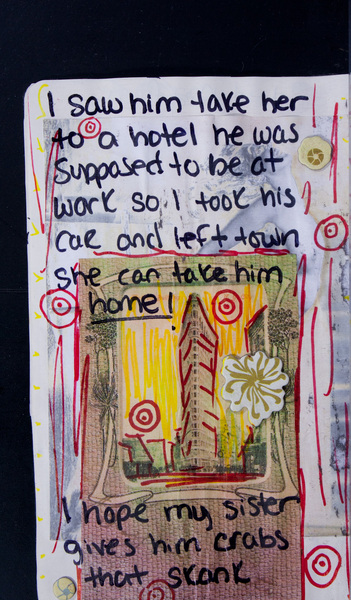 I saw him take her
to a hotel he was
supposed to be at
work so I took his
car and left town
she can take him
home!
I hope my sister
gives him crabs
that skank